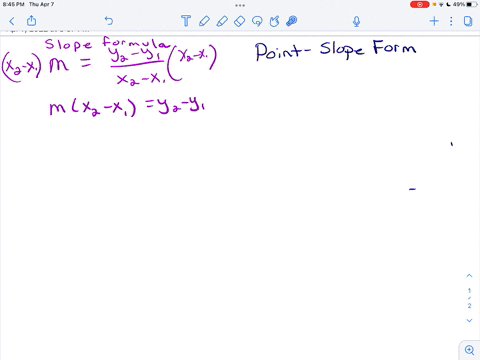 8:45 PM Thu Apr 7
49%
Slope formula
(x₂-x₁) m = y₂-y₁ / x₂-x₁ (x₂-x₁)
Point-Slope Form
m(x₂-x₁) = y₂-y₁
1
/
2